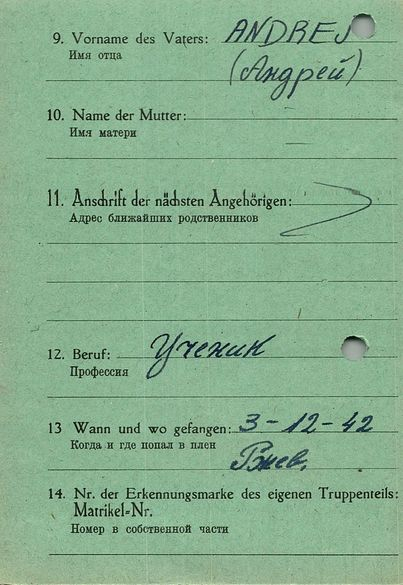 9. Vorname des Vaters: ANDREJ
Имя отца (Андрей)
10. Name der Mutter: —
Имя матери —
11. Anschrift der nächsten Angehörigen:
Адрес ближайших родственников
12. Beruf: Ученик
Профессия
13 Wann und wo gefangen: 3-12-42
Когда и где попал в плен Ржев.
14. Nr. der Erkennungsmarke des eigenen Truppenteils:
Matrikel-Nr.
Номер в собственной части